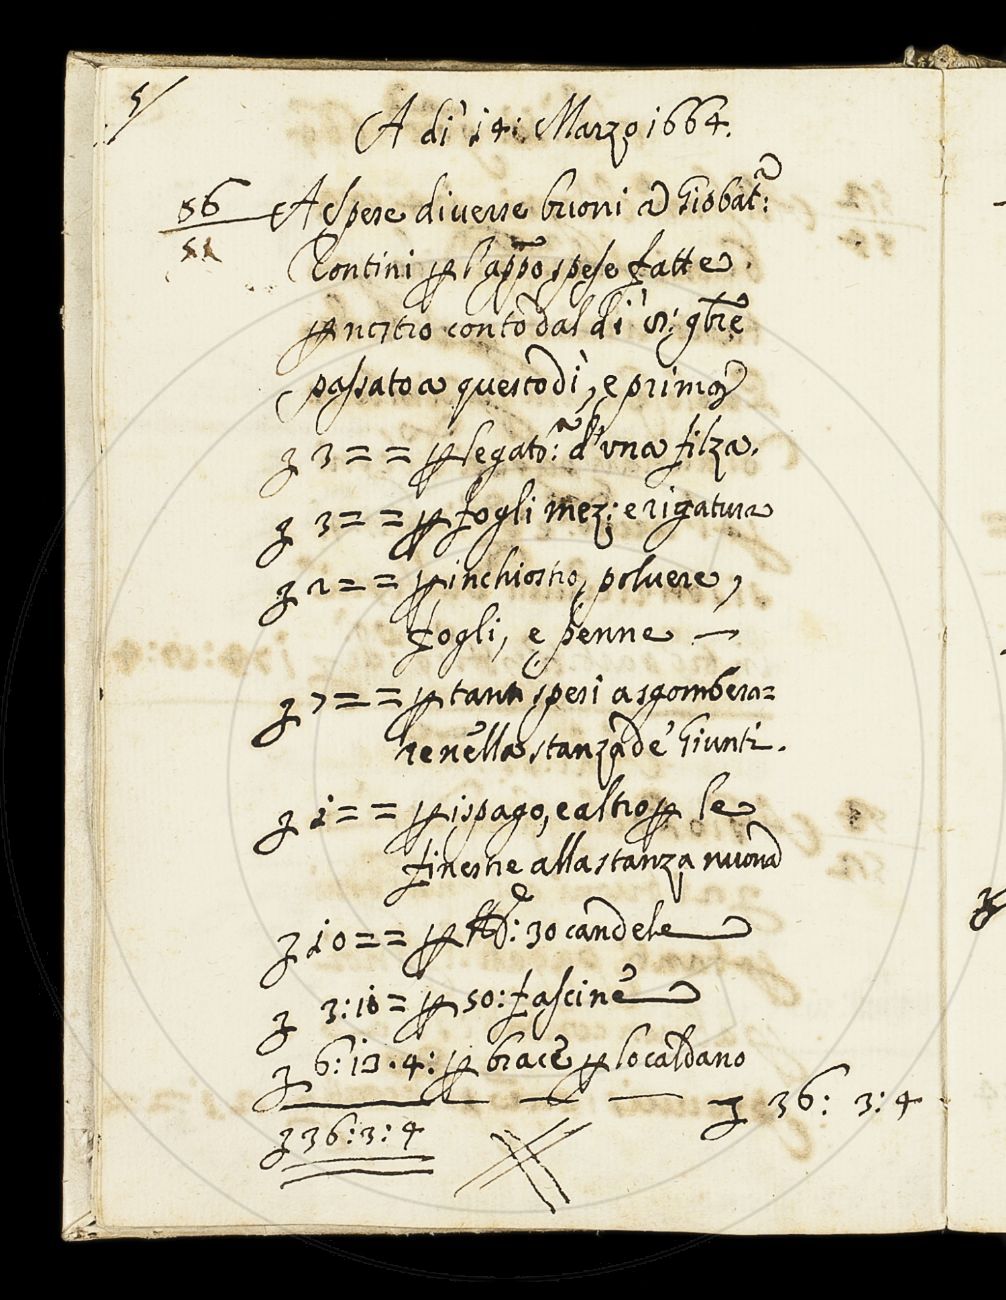 5
A di 14: Marzo 1664.
86 A Spese diuerse buoni a Giobatt.a:
51 Contini p l'app.o spese fatte
p nostro conto dal di 9bre
passato a questo dì, e prima
3 = = p legat.a: d'una filza.
3 = = p fogli mez: e rigatura
2 = = p inchiostro, poluere,
fogli, e penne —
7 = = p tanti spesi a sgombera=
re nella stanza de Giunti.
1 = = p ispago, e altro p le
finestre alla stanza nuoua
10 = = p 30 candele
3:10 = p 50: fascine
6:13.4: p brace p lo caldano
36: 3: 4
36:3:4